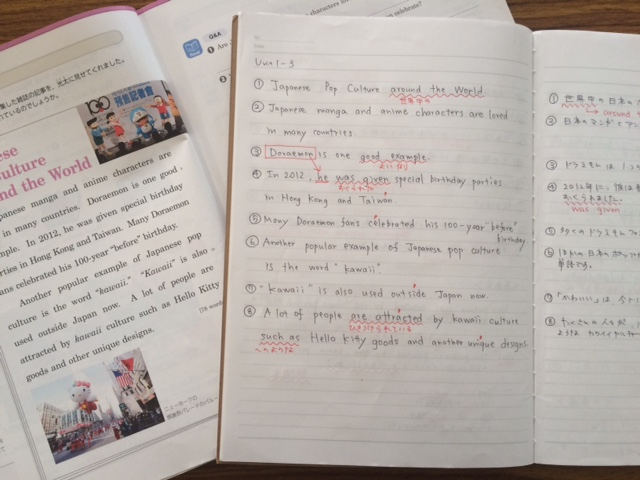 Q&A
celebrate?
集した雑誌の記事を、光太に見せてくれました。
ているのでしょうか。
100
ese
Culture
nd the World
panese manga and anime characters are
in many countries. Doraemon is one good
mple. In 2012, he was given special birthday
rties in Hong Kong and Taiwan. Many Doraemon
ans celebrated his 100-year "before" birthday.
Another popular example of Japanese pop
culture is the word "kawaii." "Kawaii" is also
used outside Japan now. A lot of people are
attracted by kawaii culture such as Hello Kitty
goods and other unique designs.
ニューヨークの
感謝祭パレードのバルー
Unit 1-3
① Japanese Pop Culture around the World.
世界中の
② Japanese manga and anime characters are loved
in many countries.
③ Doraemon is one good example.
④ In 2012, he was given special birthday parties
in Hong Kong and Taiwan
⑤ Many Doraemon fans celebrated his 100-year "before"
birthday
⑥ Another popular example of Japanese pop culture
is the word "kawaii".
⑦ "kawaii" is also used outside Japan now.
⑧ A lot of people are attracted by kawaii culture
ひきつけられている
such as Hello Kitty goods and another unique designs.
～のような
① 世界中の日本の
→ around
② 日本のマンガとアニ
③ ドラえもんは 1つの
④ 2012年に、彼は
おくられました。
was given
⑤ 多くのドラえもんファ
単語です。
⑦ 「かわいい」は、今
⑧ たくさんの人々が